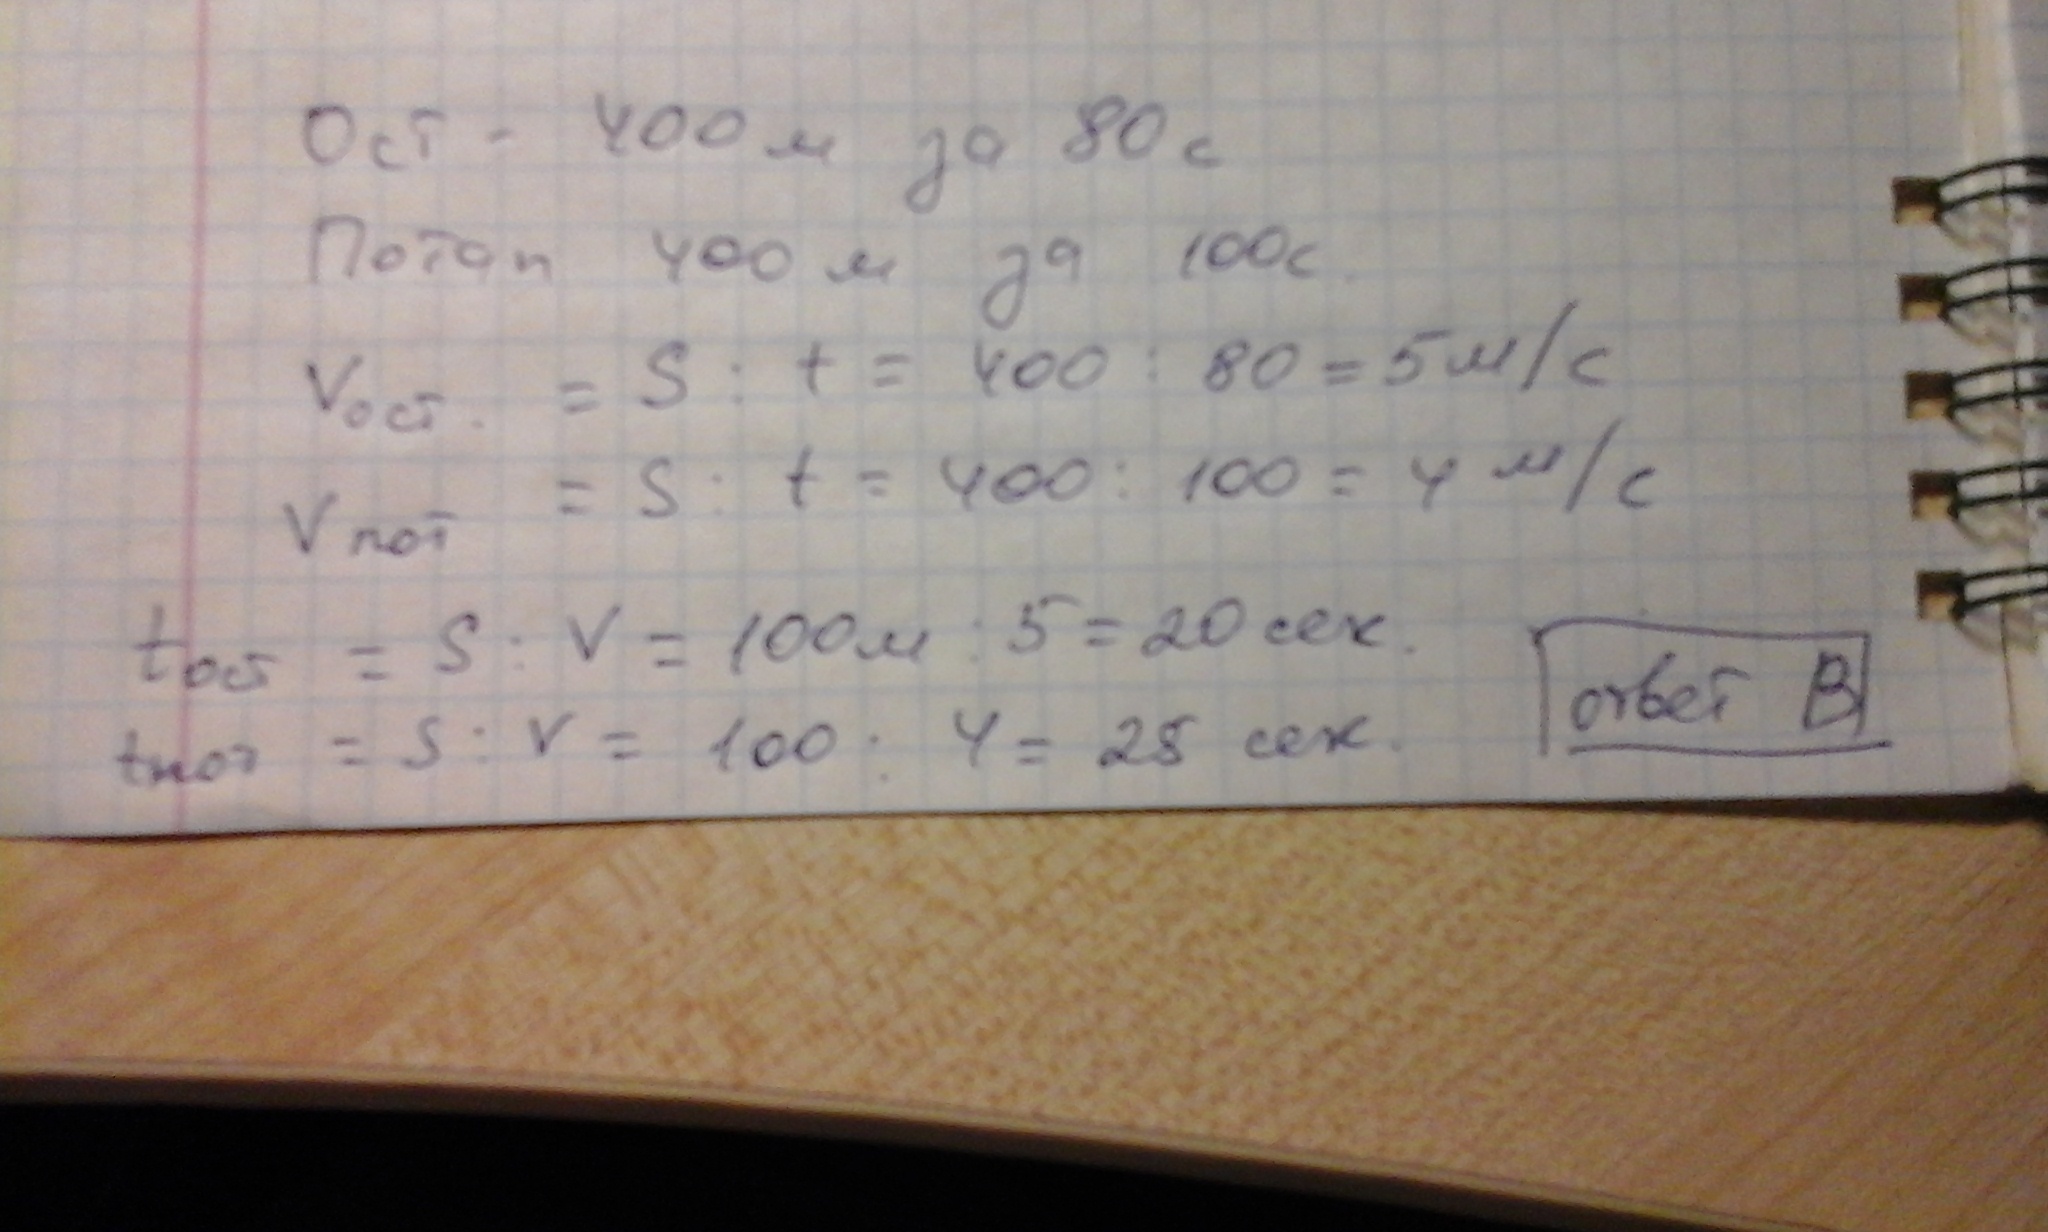 Ост - 400 м за 80 с
Потап 400 м за 100с.
Vост. = S : t = 400 : 80 = 5 м/с
Vпот = S : t = 400 : 100 = 4 м/с
tост = S : V = 100м : 5 = 20 сек.
tпот = S : V = 100 : 4 = 25 сек.
ответ В